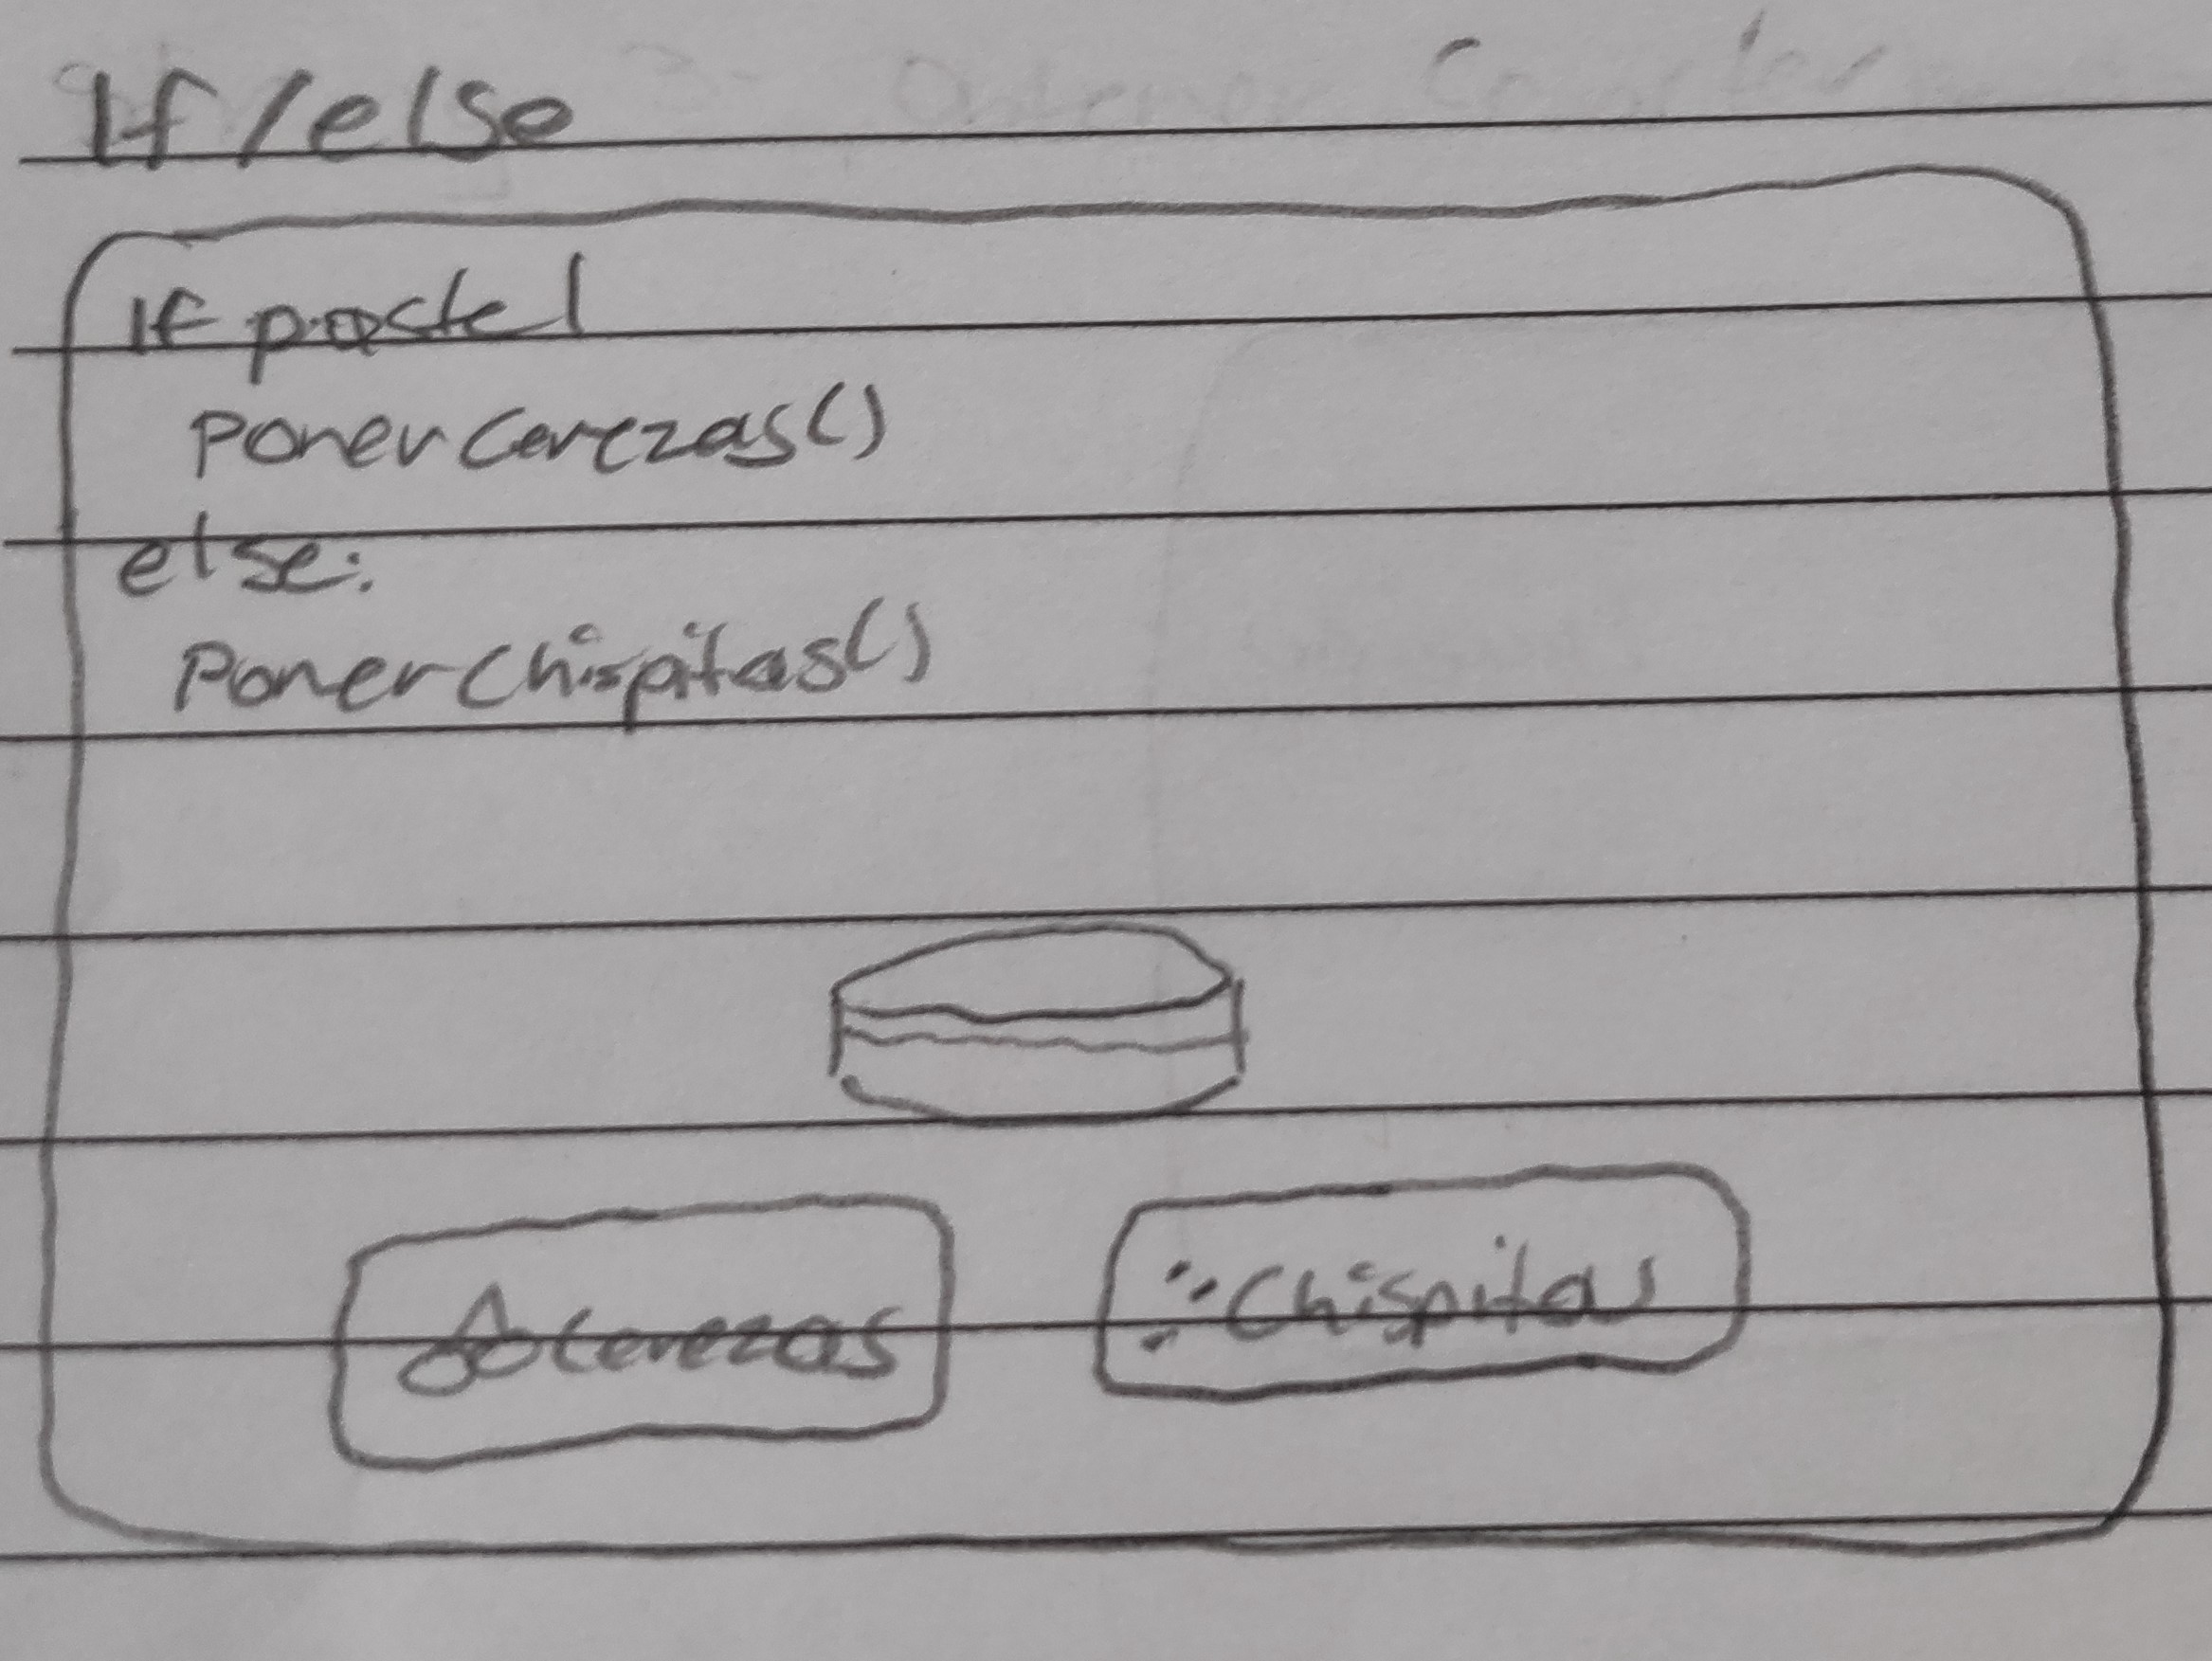 If/else
If pastel
PonerCerezas()
else:
PonerChispitas()
Cerezas
Chispitas